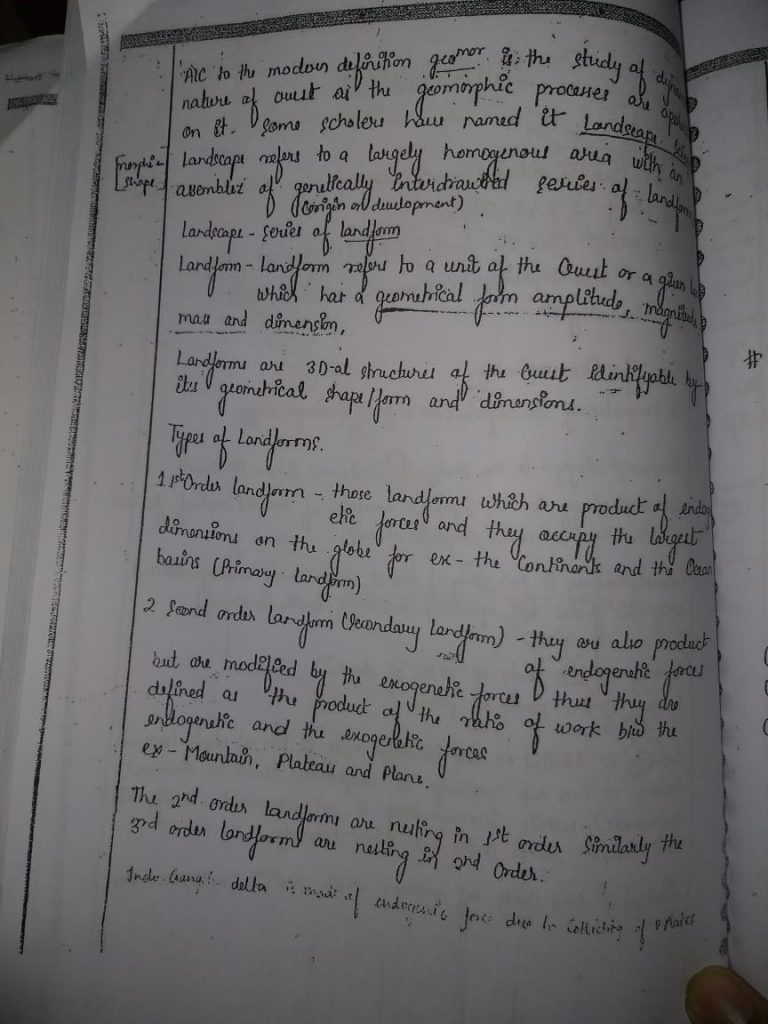 A/C to the modern definition geomor is the study of
nature of crust as the geomorphic processes are
on it. Some scholers have named it Landscape
[morphic
shape]
Landscape refers to a largely homogenous area with an
assemblez of genetically Interdrawthed series of landform
(origin or development)
Landscape - series of landform
Landform - Landform refers to a unit of the Crust or a given
which has a geometrical form amplitude, magnitude
mass and dimension,
Landforms are 3D-al structures of the Crust Identifyable by
it's geometrical shape/form and dimensions.
Types of Landforms.
1 1st Order landform - those landforms which are product of endog
etic forces and they accupy the largest
dimensions on the globe for ex - the Continents and the Ocean
basins (Primary landform)
2 Second order Landform (Secondary Landform) - they are also product
of endogenetic forces
but are modified by the exogenetic forces thus they are
defined as the product of the ratio of work b/w the
endogenetic and the exogenetic forces
ex - Mountain, Plateau and Plane.
The 2nd order landforms are nesting in 1st order Similarly the
3rd order landforms are nesting in 2nd Order.
delta is made of endogenic force due to of Plates
#